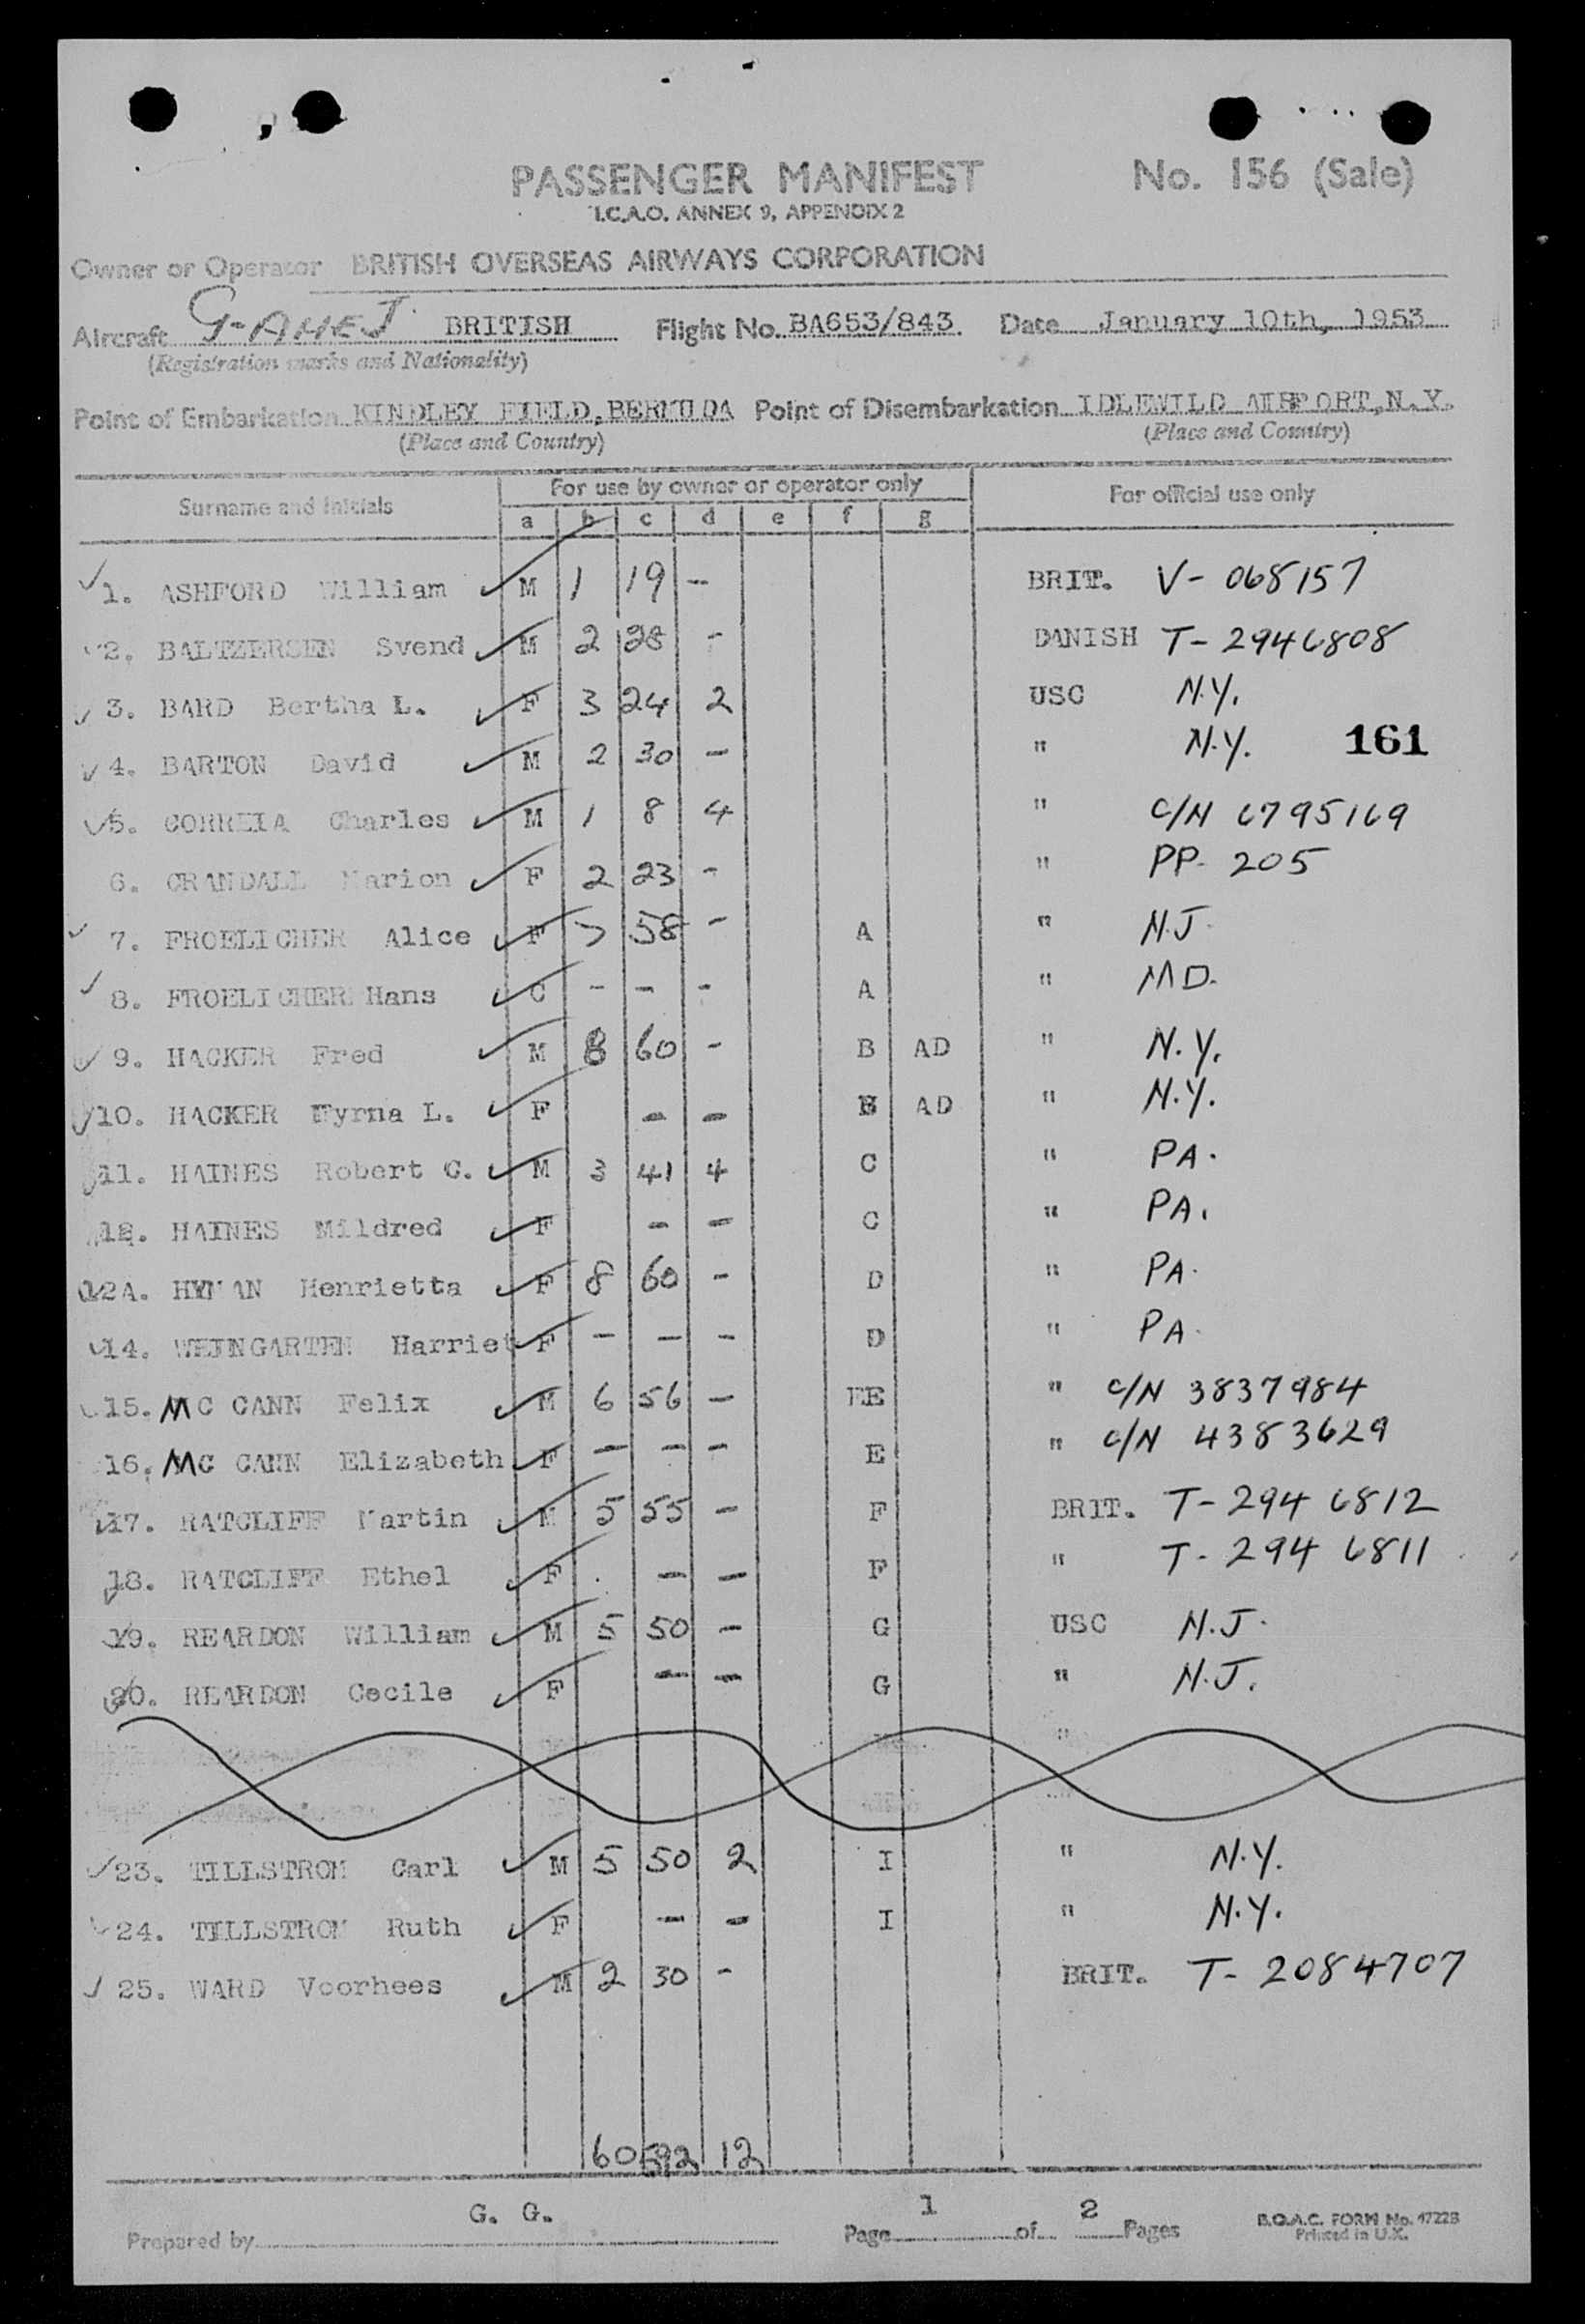 PASSENGER MANIFEST No. 156 (Sale)
I.C.A.O. ANNEX 9, APPENDIX 2
Owner or Operator BRITISH OVERSEAS AIRWAYS CORPORATION
Aircraft G-AHEJ BRITISH Flight No. BA653/843. Date January 10th, 1953
(Registration marks and Nationality)
Point of Embarkation KINDLEY FIELD, BERMUDA Point of Disembarkation IDLEWILD AIRPORT, N.Y.
(Place and Country) (Place and Country)
Surname and Initials For use by owner or operator only For official use only
a b c d e f g
1. ASHFORD William M 1 19 - BRIT. V- 068157
2. BALTZERSEN Svend M 2 28 - DANISH T- 2946808
3. BARD Bertha L. F 3 24 2 USC N.Y.
4. BARTON David M 2 30 - " N.Y. 161
5. CORREIA Charles M 1 8 4 " C/N 6795169
6. CRANDALL Marion F 2 23 - " PP- 205
7. FROELICHER Alice F 58 - A " N.J.
8. FROELICHER Hans C - - - A " MD.
9. HACKER Fred M 8 60 - B AD " N.Y.
10. HACKER Myrna L. F - - B AD " N.Y.
11. HAINES Robert C. M 3 41 4 C " PA.
12. HAINES Mildred F - - C " PA.
12A. HYMAN Henrietta F 8 60 - D " PA.
14. WEINGARTEN Harriet F - - - D " PA.
15. MC CANN Felix M 6 56 - EE " C/N 3837984
16. MC CANN Elizabeth F - - - E " C/N 4383629
17. RATCLIFF Martin M 5 55 - F BRIT. T- 294 6812
18. RATCLIFF Ethel F - - F " T- 294 6811
19. REARDON William M 5 50 - G USC N.J.
20. REARDON Cecile F - - G " N.J.
"
23. TILLSTROM Carl M 5 50 2 I " N.Y.
24. TILLSTROM Ruth F - - I " N.Y.
25. WARD Voorhees M 2 30 - BRIT. T- 2084707
60 592 12
Prepared by G. G. Page 1 of 2 Pages B.O.A.C. FORM No. 1722B
Printed in U.K.